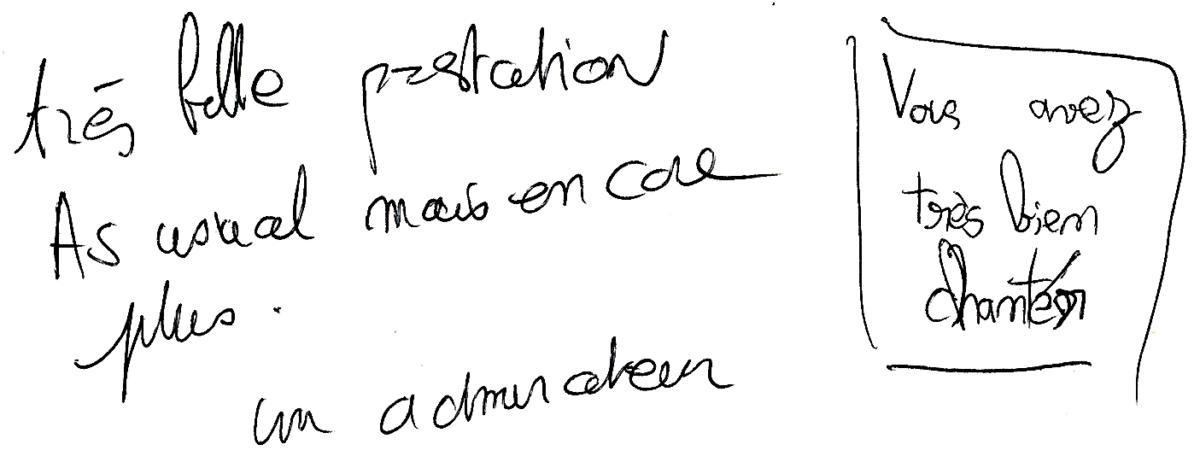 très belle prestation
As usual mais encore
plus.
un admirateur
Vous avez
très bien
chanté